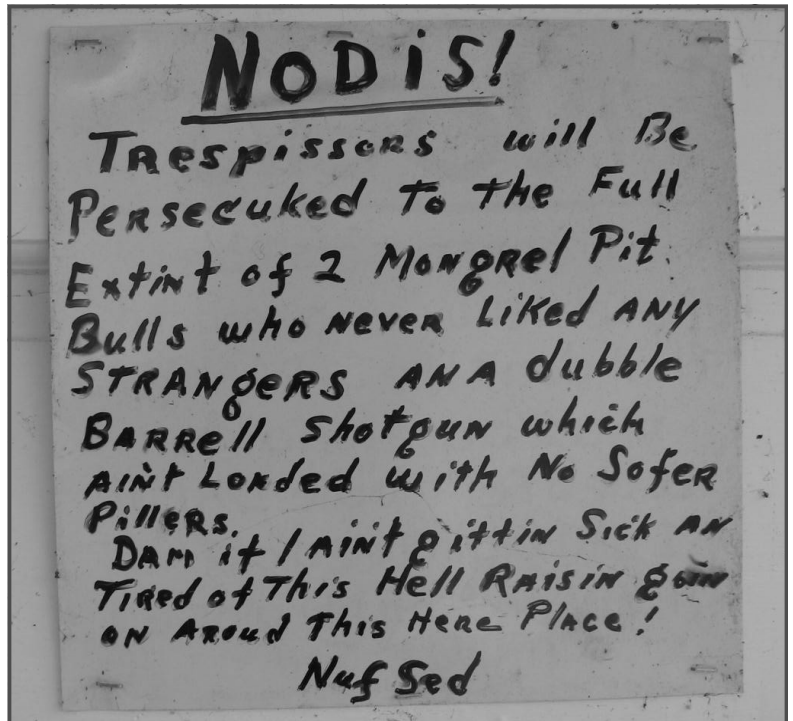 NODIS!
Trespissors will Be
Persecuked To The Full
Extint of 2 Mongrel Pit
Bulls who never Liked ANY
STRANgeRS ANA dubble
BARRell Shotgun which
AiNt Loaded with No Sofer
Pillers.
DAM if I AiNt gittin Sick AN
Tired of This Hell RAisin goin
on Aroud This Here Place!
Nuf Sed